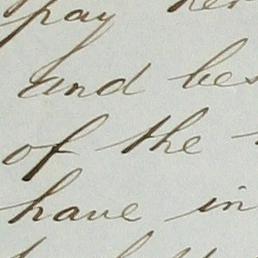 pay her
and bes
of the
have in